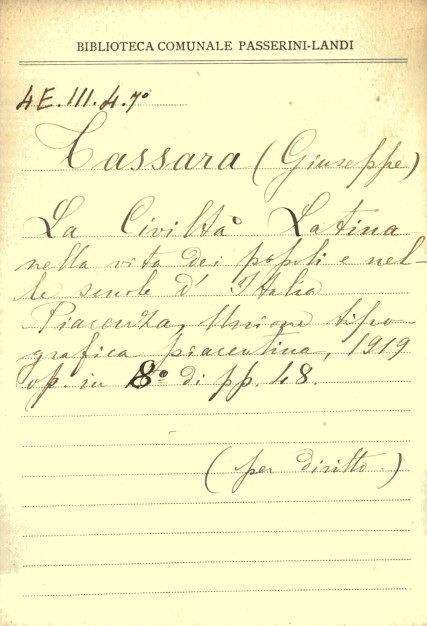 BIBLIOTECA COMUNALE PASSERINI-LANDI
4E.III.4.7º
Cassara (Giuseppe)
La Civiltà Latina
nella vita dei popoli e nel-
le scuole d'Italia
Piacenza, Unione tipo-
grafica piacentina, 1919
op. in 8º di pp. 48.
(per diritto)